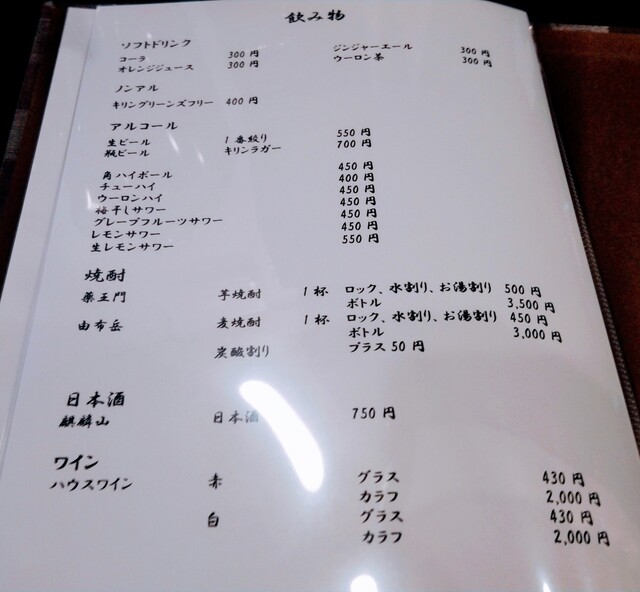 飲み物
ソフトドリンク
コーラ 300 円 ジンジャーエール 300 円
オレンジジュース 300 円 ウーロン茶 300 円
ノンアル
キリングリーンズフリー 400 円
アルコール
生ビール 1番絞り 550 円
瓶ビール キリンラガー 700 円
角ハイボール 450 円
チューハイ 400 円
ウーロンハイ 450 円
梅干しサワー 450 円
グレープフルーツサワー 450 円
レモンサワー 450 円
生レモンサワー 550 円
焼酎
薬王門 芋焼酎 1杯 ロック、水割り、お湯割り 500 円
ボトル 3,500 円
由布岳 麦焼酎 1杯 ロック、水割り、お湯割り 450 円
ボトル 3,000 円
炭酸割り プラス 50 円
日本酒
麒麟山 日本酒 750 円
ワイン
ハウスワイン 赤 グラス 430 円
カラフ 2,000 円
白 グラス 430 円
カラフ 2,000 円